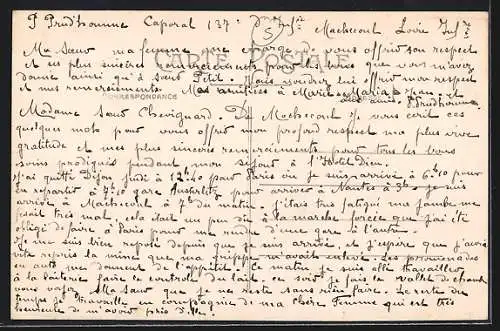 P Prudhomme Caporal 137e d'Infie Machecoul Loire Infre
Ma Sœur ma femme me charge de vous offrir son respect
et ses plus sincères remerciements pour les bons que vous m'avez
donné ainsi qu'à Petit. Vous voudrez lui offrir mon respect
et mes remerciements. Mes amitiés à Marie Maria Jean et
CARTE POSTALE
CORRESPONDANCE
Prudhomme
Madame Sœur Chevignard. De Machecoul je vous écris ces
quelques mots pour vous offrir mon profond respect ma plus vive
gratitude et mes plus sincères remerciements pour tous les bons
soins prodigués pendant mon séjour à l'Hotel Dieu.
J'ai quitté Dijon jeudi à 12h40 pour Paris où je suis arrivé à 6h10 pour
en repartir à 7h10 gare Austerlitz pour arriver à Nantes à 3h je suis
arrivé à Machecoul à 7h du matin. J'étais très fatigué ma jambe me
fesait très mal, cela était un peu dû à la marche forcée que j'ai été
obligé de faire à Paris pour me rendre d'une gare à l'autre.
Je me suis bien reposé depuis que je suis arrivé, et j'espère que j'aurai
vite repris la mine que ma grippe m'avait enlevé. Les promenades
en auto me donnent de l'appétit. Ce matin je suis allé travailler
à la laiterie faire le contrôle du lait. Ce soir je fais le valet de chambre
vous voyez Ma Sœur que je ne reste sans rien faire. Le reste du
temps je travaille en compagnie de ma chère Femme qui est très
heureuse de m'avoir près d'elle.